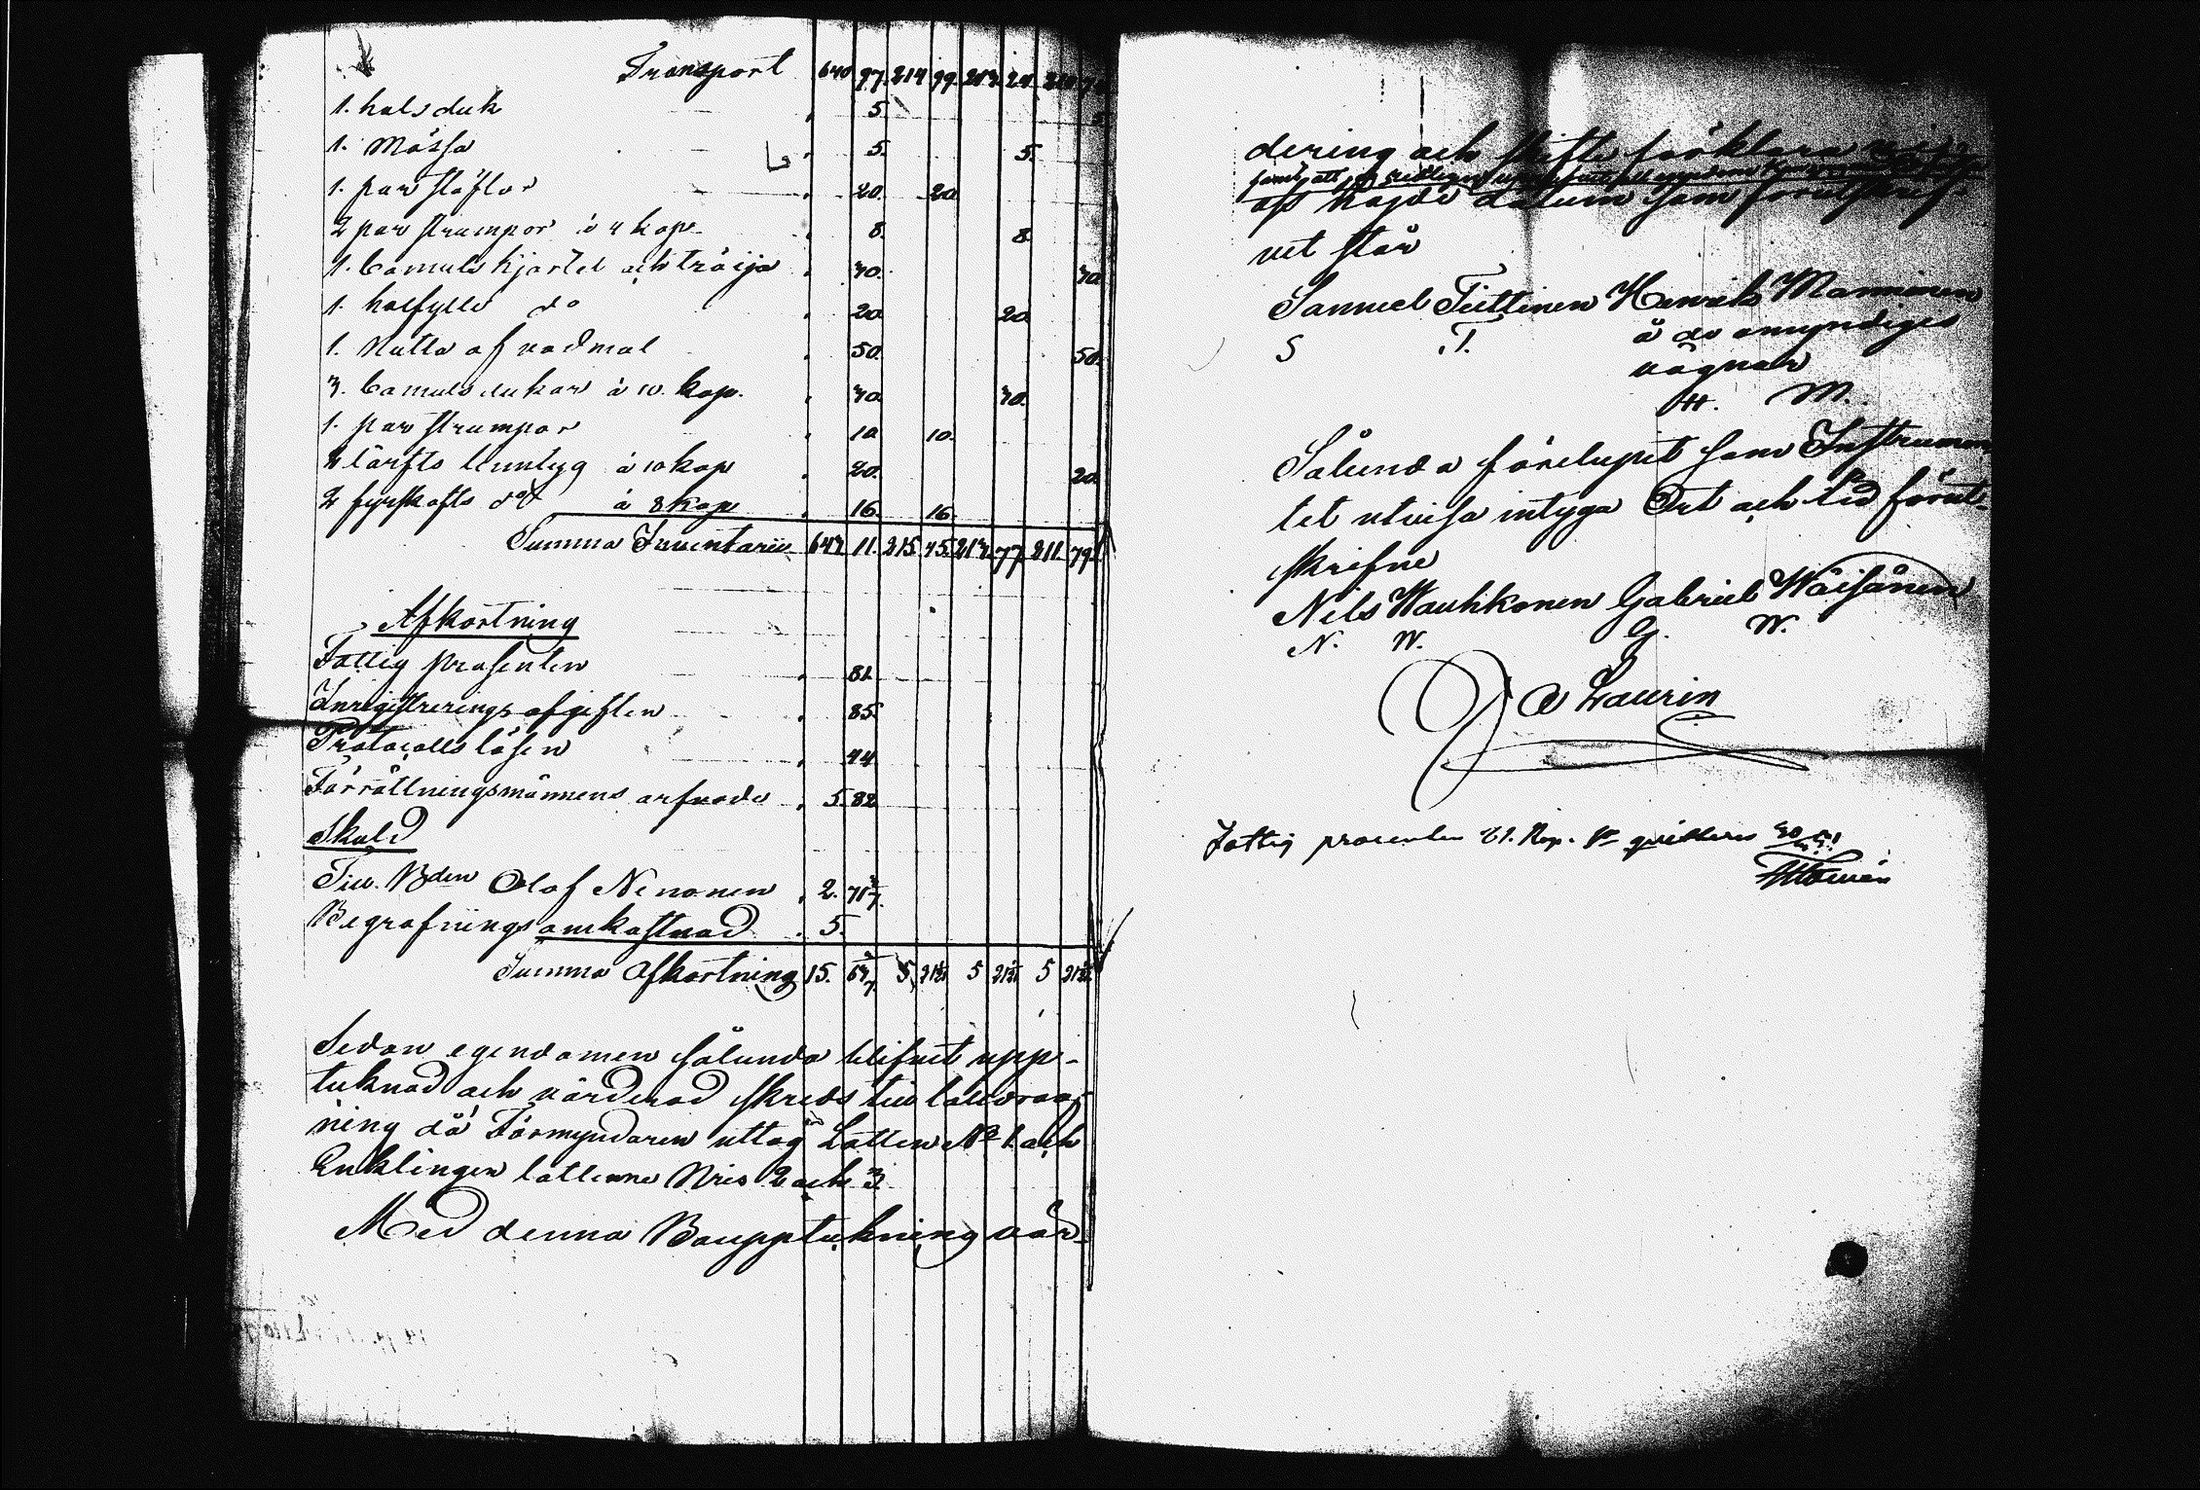 Transport 640 97 214 99 213 24 211
1. halsduk 5. 5
1. Mössa 5. 5.
1. par stöflor 20. 20
2 par strumpor à 4 kop. 8. 8
1. bomuls kjortel och tröija 30. 30
1. halfylle do 20 20
1. Kålta af vadmal 50. 50.
3. bomuls dukar à 10. kop. 30. 30.
1. par strumpor 10 10.
2 lärfts linntyg à 10 kop 20. 20
2 fyrskafts do à 8 kop 16. 16
Summa Inventarii 643 11. 215. 45. 213. 77 211. 79
Afkortning
Fattig prosenten 81
Inregistrerings afgiften 85
Protocolls lösen 44
Förrättningsmännens arfvode 5. 82
Skuld
Till Bden Olof Nenonen 2. 71
Begrafnings omkostnad 5.
Summa Afkortning 15. 5 5 5
Sedan egendomen sålunda blifvit upp-
teknad och värderad skreds till lottdrag-
ning då Förmyndaren uttog Lotten No 1. och
Enklingen lotterne Nris 2 och 3.
Med denna Bouppteckning vär-
dering och skifte förklara
oss nöjde datum som förutskrif
vet står
Samuel Tiittinen Henrik Manninen
S T. å de omyndiges
vägnar
H. M.
Sålunda föreluppit som Instrumen
tet utvisa intyga Ort och tid förut-
skrifne
Nils Wauhkonen Gabriel Wäisänen
N. W. G. W.
Laurin
Fattig procenten 81. Kop. Sr quitteras